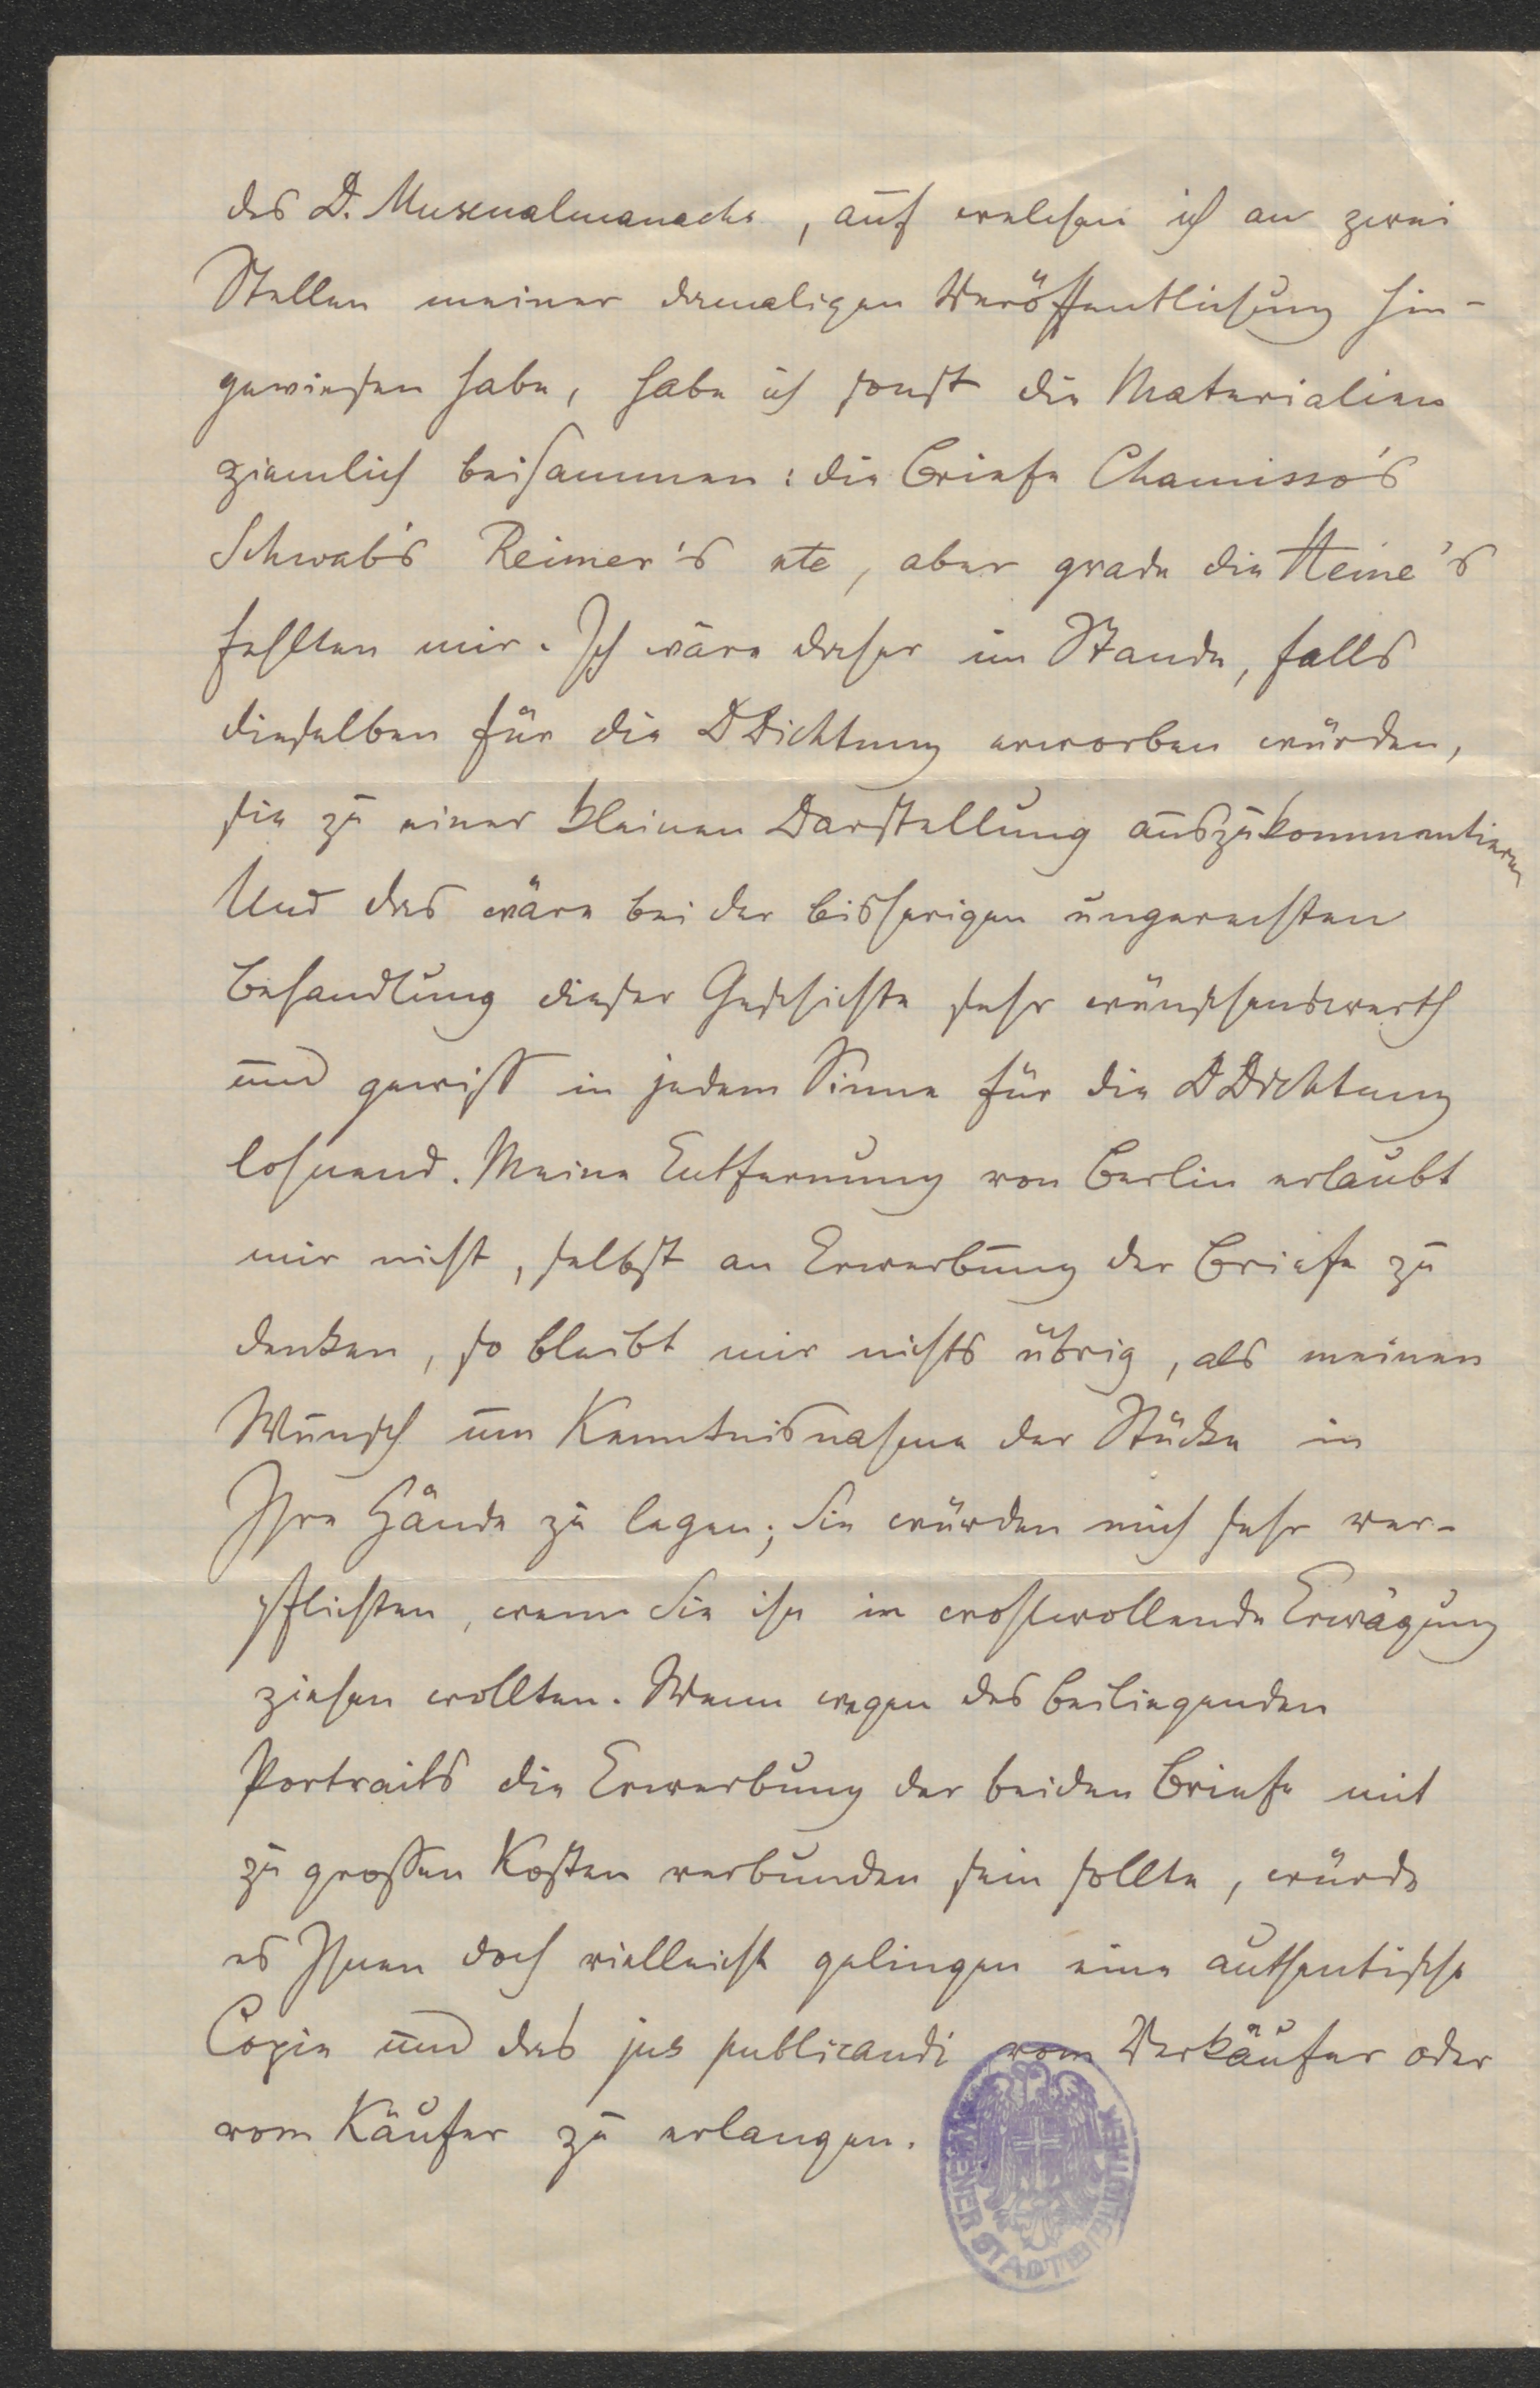 des D. Musenalmanachs, auf welchen ich an zwei
Stellen meiner damaligen Veröffentlichung hin-
gewiesen habe, habe ich sonst die Materialien
ziemlich beisammen: die Briefe Chamisso's
Schwab's Reimer's etc, aber grade die Heine's
fehlten mir. Ich wäre daher im Stande, falls
dieselben für die DDichtung erworben würden,
sie zu einer kleinen Darstellung auszukommentieren
Und das wäre bei der bisherigen ungerechten
Behandlung dieser Geschichte sehr wünschenswerth
und gewiß in jedem Sinne für die DDichtung
lohnend. Meine Entfernung von Berlin erlaubt
mir nicht, selbst an Erwerbung der Briefe zu
denken, so bleibt mir nichts übrig, als meinen
Wunsch um Kenntnisnahme der Stücke in
Ihre Hände zu legen; Sie würden mich sehr ver-
pflichten, wenn Sie ihn in wohlwollende Erwägung
ziehen wollten. Wenn wegen des beiliegenden
Portraits die Erwerbung der beiden Briefe mit
zu großen Kosten verbunden sein sollte, würde
es Ihnen doch vielleicht gelingen eine authentische
Copie und das jus publicandi vom Verkäufer oder
vom Käufer zu erlangen.
WIENER STADTBIBLIOTHEK